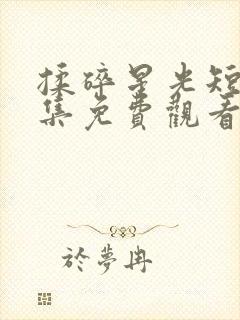 揉碎星光短
集免費觀看
於夢冉